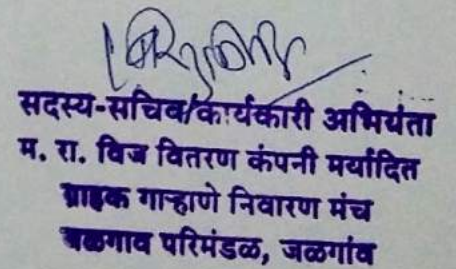 सदस्य-सचिव/कार्यकारी अभियंता
म. रा. विज वितरण कंपनी मर्यादित
ग्राहक गाऱ्हाणे निवारण मंच
जळगाव परिमंडळ, जळगांव